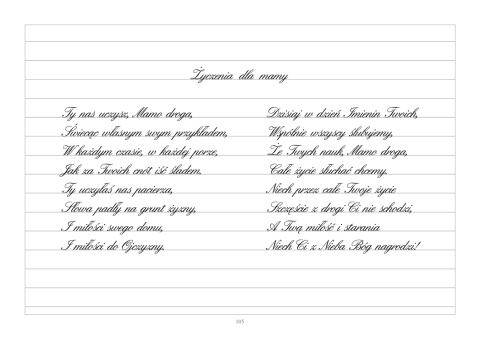 Życzenia dla mamy
Ty nas uczysz, Mamo droga,
Świecąc własnym swym przykładem,
W każdym czasie, w każdej porze,
Jak za Twoich cnót iść śladem.
Ty uczyłaś nas pacierza,
Słowa padły na grunt żyzny,
I miłości swego domu,
I miłości do Ojczyzny.
Dzisiaj w dzień Imienin Twoich,
Wspólnie wszyscy ślubujemy,
Że Twych nauk, Mamo droga,
Całe życie słuchać chcemy.
Niech przez całe Twoje życie
Szczęście z drogi Ci nie schodzi,
A Twą miłość i starania
Niech Ci z Nieba Bóg nagrodzi!
105